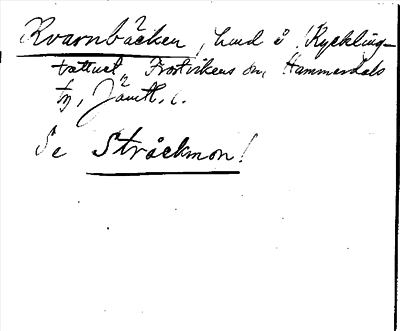 Kvarnbäcken, bäck i Kyckling-
vattnet, Frostvikens sn, Hammerdals
tg, Jämtl. l.
Se Stråckmon!